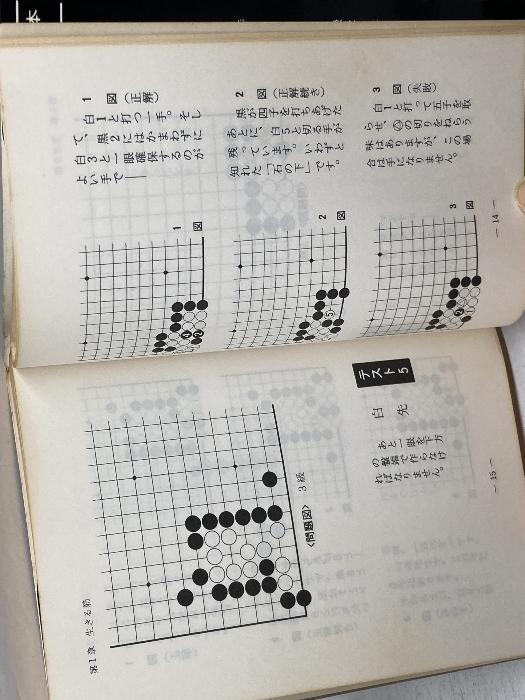 本
1 図(正解)
白1と打つ一手。そし
て、黒2にはかまわずに
白3と一眼確保するのが
よい手で――
2 図(正解続き)
黒が四子を打ちあげた
あとに、白5と切る手が
残っています。いわずと
知れた「石の下」です。
3 図(失敗)
白1と打って五子を取
らせ、△の切りをねらう
味はありますが、この場
合は手になりません。
1 図
2 図
5
3 図
— 14 —
第1章 生きる筋
テスト5
白 先
あと一眼を下方
の盤端で作らなけ
ればなりません。
〈問題図〉 3級
— 15 —